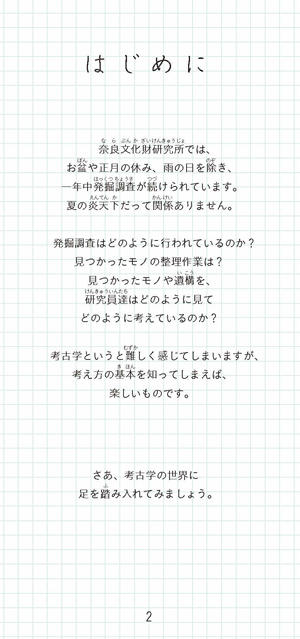 はじめに
奈良文化財研究所では、
お盆や正月の休み、雨の日を除き、
一年中発掘調査が続けられています。
夏の炎天下だって関係ありません。
発掘調査はどのように行われているのか？
見つかったモノの整理作業は？
見つかったモノや遺構を、
研究員達はどのように見て
どのように考えているのか？
考古学というと難しく感じてしまいますが、
考え方の基本を知ってしまえば、
楽しいものです。
さあ、考古学の世界に
足を踏み入れてみましょう。
2